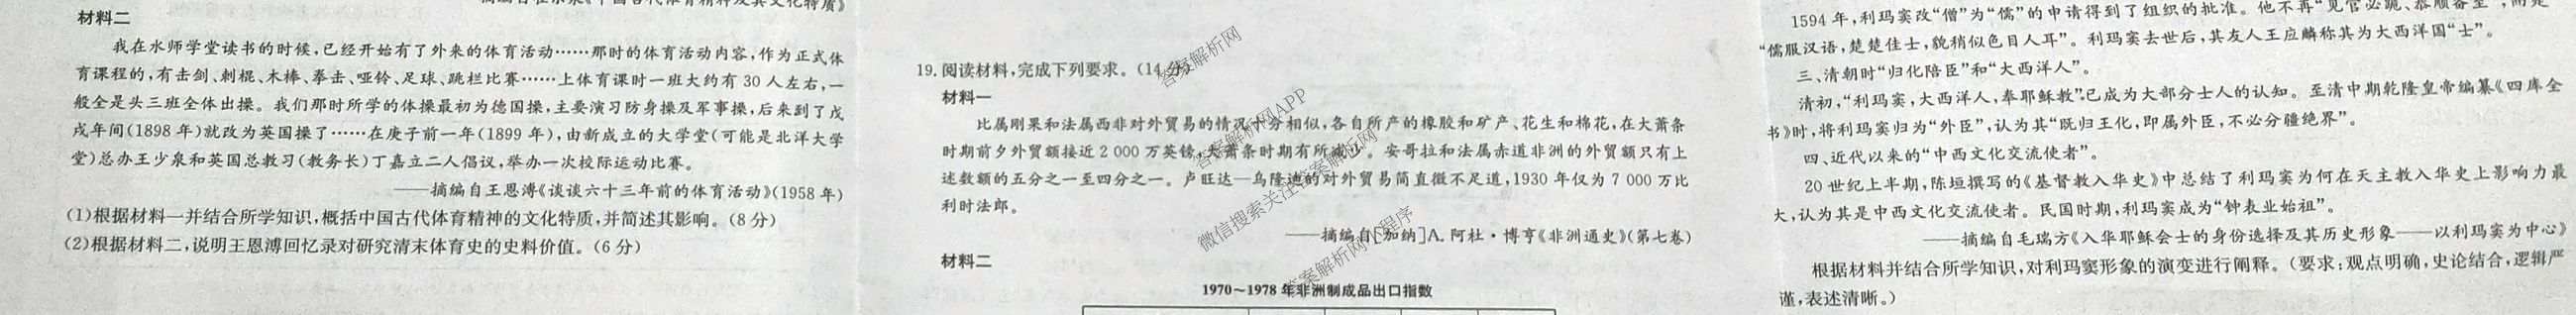 材料二
我在水师学堂读书的时候,已经开始有了外来的体育活动……那时的体育活动内容,作为正式体
育课程的,有击剑、刺棍、木棒、拳击、哑铃、足球、跳栏比赛……上体育课时一班大约有30人左右,一
般全是头三班全体出操。我们那时所学的体操最初为德国操,主要演习防身操及军事操,后来到了戊
戌年间(1898年)就改为英国操了……在庚子前一年(1899年),由新成立的大学堂(可能是北洋大学
堂)总办王少泉和英国总教习(教务长)丁嘉立二人倡议,举办一次校际运动比赛。
——摘编自王恩溥《谈谈六十三年前的体育活动》(1958年)
(1)根据材料一并结合所学知识,概括中国古代体育精神的文化特质,并简述其影响。(8分)
(2)根据材料二,说明王恩溥回忆录对研究清末体育史的史料价值。(6分)
19.阅读材料,完成下列要求。(14分)
材料一
比属刚果和法属西非对外贸易的情况十分相似,各自所产的橡胶和矿产、花生和棉花,在大萧条
时期前夕外贸额接近2 000万英镑,大萧条时期有所减少。安哥拉和法属赤道非洲的外贸额只有上
述数额的五分之一至四分之一。卢旺达—乌隆迪的对外贸易简直微不足道,1930年仅为7 000万比
利时法郎。
——摘编自[加纳]A.阿杜·博亨《非洲通史》(第七卷)
材料二
1970~1978年非洲制成品出口指数
1594年,利玛窦改“僧”为“儒”的申请得到了组织的批准。他不再“见官必跪、恭顺备至”,而是
“儒服汉语,楚楚佳士,貌稍似色目人耳”。利玛窦去世后,其友人王应麟称其为大西洋国“士”。
三、清朝时“归化陪臣”和“大西洋人”。
清初,“利玛窦,大西洋人,奉耶稣教”已成为大部分士人的认知。至清中期乾隆皇帝编纂《四库全
书》时,将利玛窦归为“外臣”,认为其“既归王化,即属外臣,不必分疆绝界”。
四、近代以来的“中西文化交流使者”。
20世纪上半期,陈垣撰写的《基督教入华史》中总结了利玛窦为何在天主教入华史上影响力最
大,认为其是中西文化交流使者。民国时期,利玛窦成为“钟表业始祖”。
——摘编自毛瑞方《入华耶稣会士的身份选择及其历史形象——以利玛窦为中心》
根据材料并结合所学知识,对利玛窦形象的演变进行阐释。(要求:观点明确,史论结合,逻辑严
谨,表述清晰。)
答案解析网
答案解析网APP
微信搜索关注答案解析网
答案解析网小程序